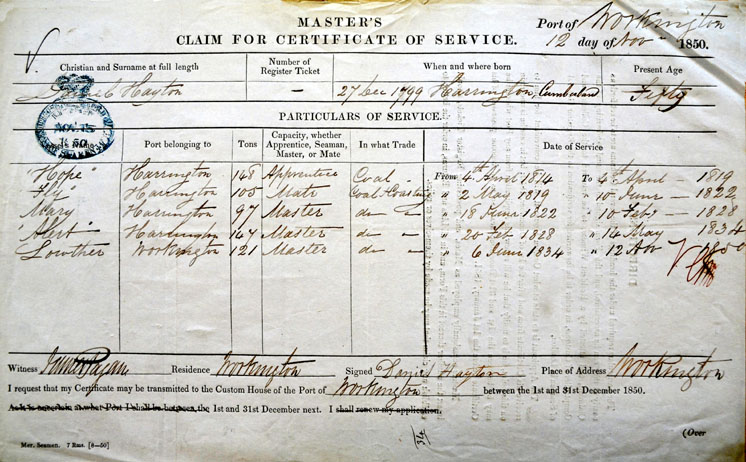 MASTER'S Port of Workington
CLAIM FOR CERTIFICATE OF SERVICE. 12 day of Nov 1850.
Christian and Surname at full length Number of Register Ticket When and where born Present Age
Daniel Hayton — 27 Dec 1799 Harrington, Cumberland Fifty
PARTICULARS OF SERVICE.
Port belonging to Tons Capacity, whether Apprentice, Seaman, Master, or Mate In what Trade Date of Service
"Hope" Harrington 148 Apprentice Coal From 4th April 1814 To 4th April — 1819
"Fly" Harrington 105 Mate Coal & Coasting " 2 May 1819 " 10 June — 1822
Mary Harrington 97 Master do " " 18 June 1822 " 10 Feb — 1828
"Alert" Harrington 147 Master do " " 20 Feb 1828 " 14 May 1834
Lowther Workington 121 Master do " " 6 June 1834 " 12 Nov 1850
Witness Residence Workington Signed Daniel Hayton Place of Address Workington
I request that my Certificate may be transmitted to the Custom House of the Port of Workington between the 1st and 31st December 1850.
the 1st and 31st December next. I shall renew my application.
314
(Over
Mer. Seamen. 7 Rms. [8—50]